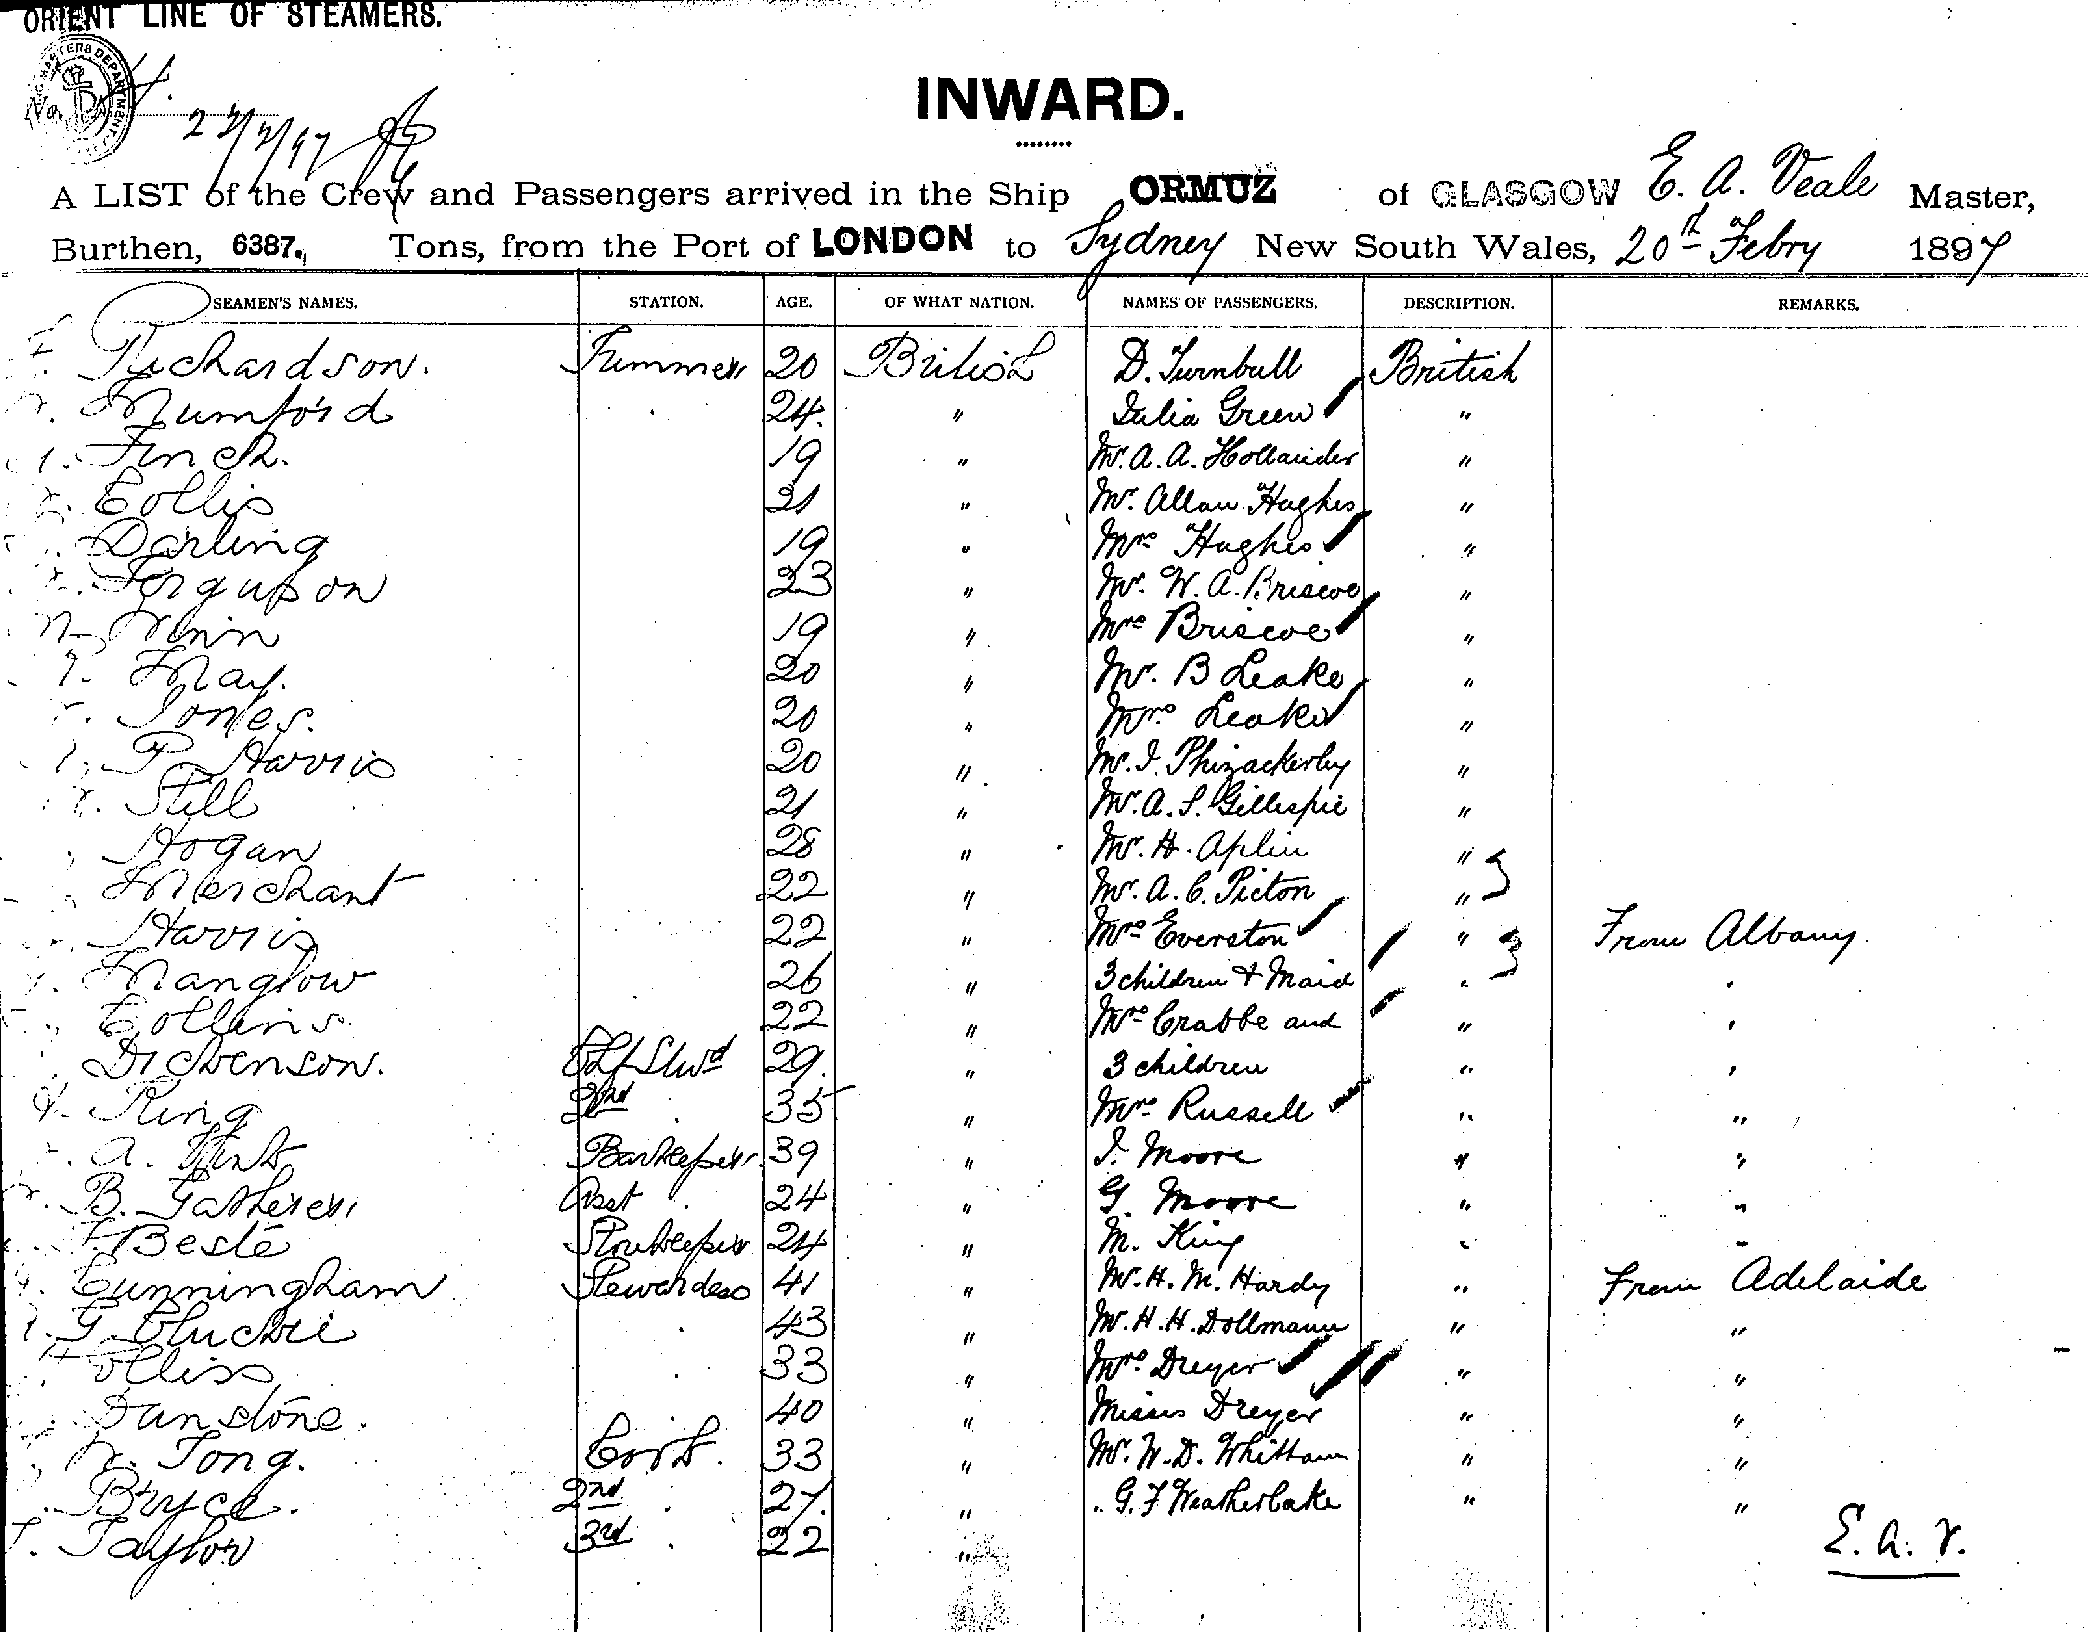 ORIENT LINE OF STEAMERS.
INWARD.
A LIST of the Crew and Passengers arrived in the Ship ORMUZ of GLASGOW E. A. Veale Master,
Burthen, 6387., Tons, from the Port of LONDON to Sydney New South Wales, 20th Febry 1897
SEAMEN'S NAMES. STATION. AGE. OF WHAT NATION. NAMES OF PASSENGERS. DESCRIPTION. REMARKS.
Richardson. Trimmer 20 British D. Turnbull British
Mumford 24. " Julia Green "
Finch. 19 " Mr. A. A. Hollander "
Collis 21 " Mr. Allan Hughes "
Darling 19 " Mrs Hughes "
Ferguson 23 " Mr. W. A. Briscoe "
19 " Mrs Briscoe "
May. 20 " Mr. B Leake "
Jones. 20 " Mrs. Leake "
P. Harris 20 " Mr. J. Phizackerley "
Still 21 " Mr. A. S. Gillespie "
Hogan 28 " Mr. H. Aplin "
Merchant 22 " Mr. A. C. Picton "
Harris 22 " Mrs Everston " From Albany.
Manglow 26 " 3 children & Maid " "
Collins. 22 " Mrs Crabbe and " "
Dickenson. Stwd 29. " 3 children " "
King 2nd 35 " Mrs Russell " "
A. Barkeeper 39 " J. Moore " "
B. Gatherer Asst 24 " G. Moore " "
Beste Storekeeper 24 " M. King " "
Cunningham Stewardess 41 " Mr. H. M. Hardy " From Adelaide
G. 43 " Mr. H. H. Dollmann " "
Colliss 33 " Mrs. Dreyer " "
Dunstone. 40 " Misses Dreyer " "
Tong. Cook. 33 " Mr. W. D. Whitham " "
Bryce. 2nd 27. " " G. F Weatherlake " "
Taylor 3rd 22 "
E. A. V.